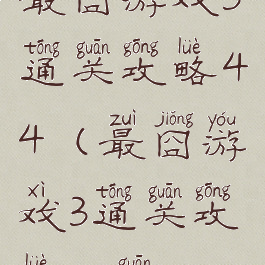 最囧游戏3
tōng guān gōng lüè
通关攻略4
zuì jiǒng yóu
4(最囧游
xì tōng guān gōng
戏3通关攻
lüè guān